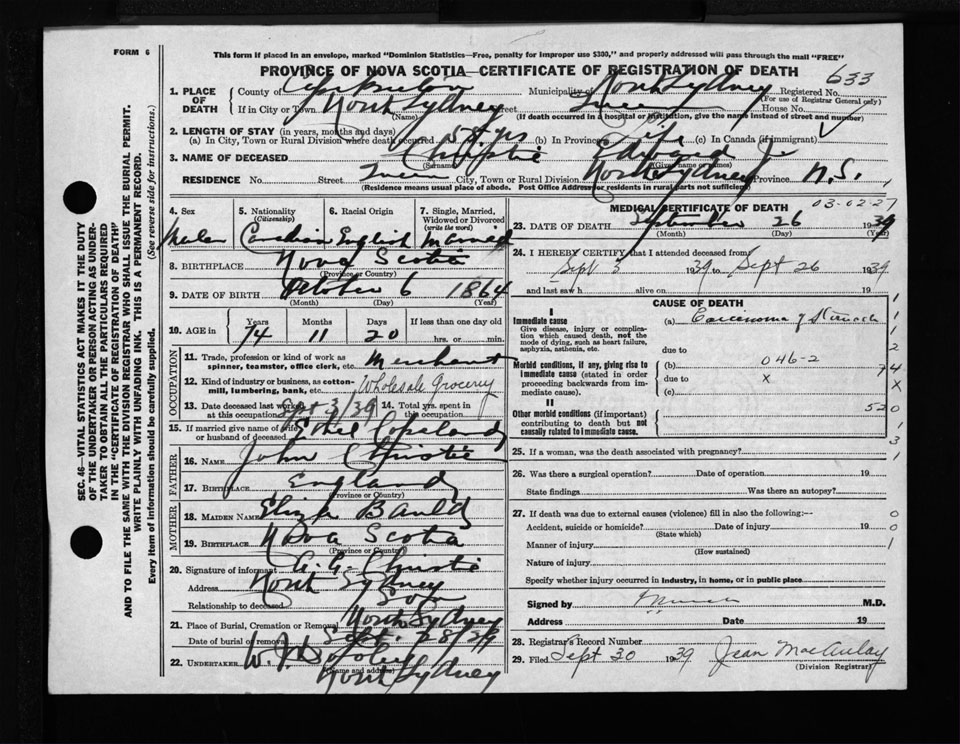 FORM 6
This form if placed in an envelope, marked "Dominion Statistics—Free, penalty for improper use $300," and properly addressed will pass through the mail "FREE"
PROVINCE OF NOVA SCOTIA—CERTIFICATE OF REGISTRATION OF DEATH
633
1. PLACE OF DEATH
County of Cape Breton Municipality of North Sydney Registered No.
(For use of Registrar General only)
If in City or Town North Sydney Street Queen House No.
(Name) (If death occurred in a hospital or institution, give the name instead of street and number)
2. LENGTH OF STAY (in years, months and days)
(a) In City, Town or Rural Division where death occurred 54 yrs (b) In Province Life (c) In Canada (if immigrant)
3. NAME OF DECEASED Christie Edward J.
(Surname) (Given name or names)
RESIDENCE No. Street Queen City, Town or Rural Division North Sydney Province N.S.
(Residence means usual place of abode. Post Office Address for residents in rural parts not sufficient)
4. Sex Male
5. Nationality (Citizenship) Canadian
6. Racial Origin English
7. Single, Married, Widowed or Divorced (write the word) Married
8. BIRTHPLACE Nova Scotia
(Province or Country)
9. DATE OF BIRTH October 6 1864
(Month) (Day) (Year)
10. AGE in Years Months Days If less than one day old
74 11 20 hrs. or min.
OCCUPATION
11. Trade, profession or kind of work as spinner, teamster, office clerk, etc. Merchant
12. Kind of industry or business, as cotton-mill, lumbering, bank, etc. Wholesale Grocery
13. Date deceased last worked at this occupation Sept 3/39 14. Total yrs. spent in this occupation
15. If married give name of wife or husband of deceased Ethel Copeland
FATHER
16. NAME John Christie
17. BIRTHPLACE England
(Province or Country)
MOTHER
18. MAIDEN NAME Eliza Bauld
19. BIRTHPLACE Nova Scotia
(Province or Country)
20. Signature of informant A. G. Christie
Address North Sydney
Relationship to deceased Son
21. Place of Burial, Cremation or Removal North Sydney
Date of burial or removal Sept. 28/39
22. UNDERTAKER W. J. Dooley
(Name and address)
North Sydney
MEDICAL CERTIFICATE OF DEATH
03-02-27
23. DATE OF DEATH September 26 1939
(Month) (Day) (Year)
24. I HEREBY CERTIFY that I attended deceased from
Sept 3 1939 to Sept 26 1939
and last saw h alive on 19
CAUSE OF DEATH
I
Immediate cause (a) Carcinoma of Stomach
Give disease, injury or complication which caused death, not the mode of dying, such as heart failure, asphyxia, asthenia, etc.
due to
Morbid conditions, if any, giving rise to immediate cause (stated in order proceeding backwards from immediate cause).
(b) 046-2
due to x
(c)
II
Other morbid conditions (if important) contributing to death but not causally related to immediate cause.
520
25. If a woman, was the death associated with pregnancy?
26. Was there a surgical operation? Date of operation 19
State findings Was there an autopsy?
27. If death was due to external causes (violence) fill in also the following:—
Accident, suicide or homicide? Date of injury 19
(State which)
Manner of injury
(How sustained)
Nature of injury
Specify whether injury occurred in industry, in home, or in public place
Signed by M.D.
Address Date 19
28. Registrar's Record Number
29. Filed Sept 30 1939 Jean MacAulay
(Division Registrar)
SEC. 46—VITAL STATISTICS ACT MAKES IT THE DUTY
OF THE UNDERTAKER OR PERSON ACTING AS UNDER-
TAKER TO OBTAIN ALL THE PARTICULARS REQUIRED
IN THE "CERTIFICATE OF REGISTRATION OF DEATH"
AND TO FILE THE SAME WITH THE DIVISION REGISTRAR WHO SHALL ISSUE THE BURIAL PERMIT.
WRITE PLAINLY WITH UNFADING INK. THIS IS A PERMANENT RECORD.
Every item of information should be carefully supplied. (See reverse side for instructions.)